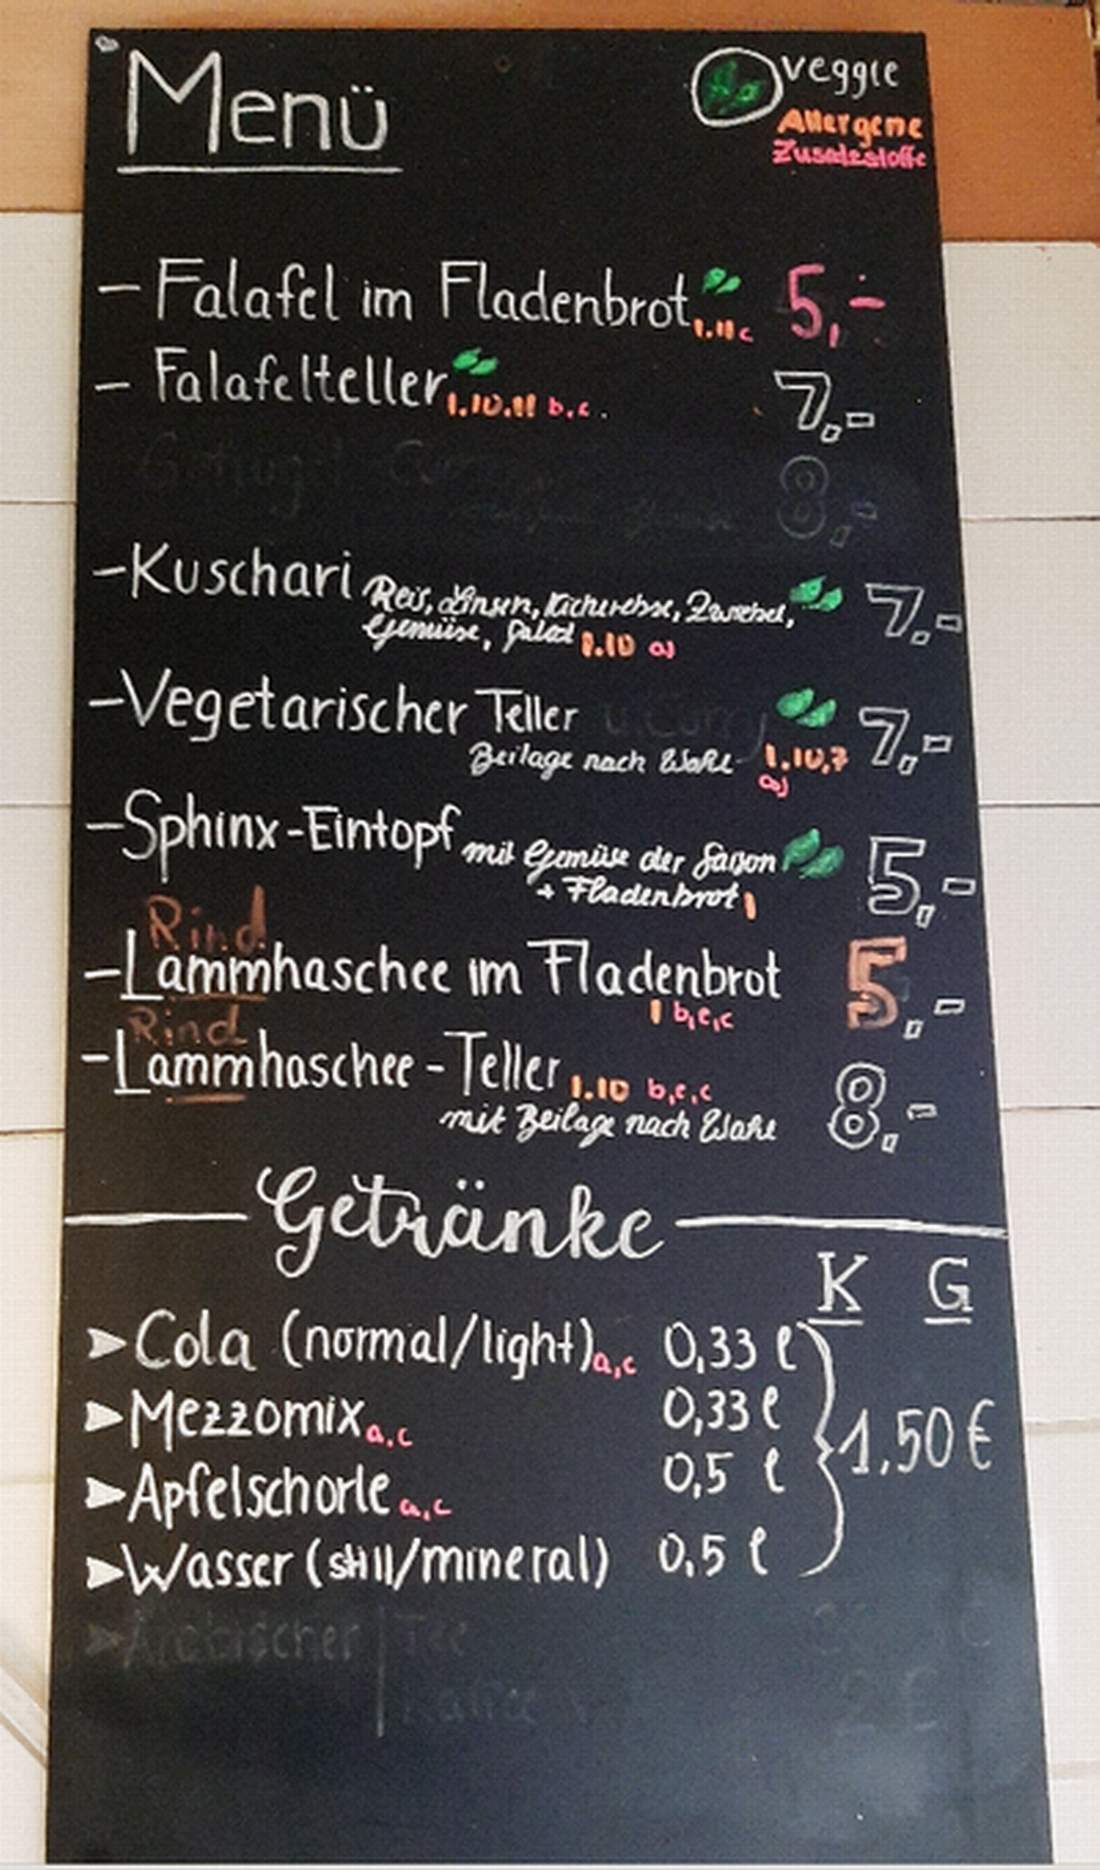 Menü
veggie
Allergene
Zusatzstoffe
- Falafel im Fladenbrot 1.11 c 5,-
- Falafelteller 1.10.11 b,c. 7,-
8,-
- Kuschari Reis, Linsen, Kichererbse, Zwiebel, 7,-
Gemüse, Salat 1.10 a)
- Vegetarischer Teller u. Curry 7,-
Beilage nach Wahl 1.10,7
a)
- Sphinx-Eintopf mit Gemüse der Saison 5,-
+ Fladenbrot 1
Rind
- Lammhaschee im Fladenbrot 5,-
1 b,e,c
Rind
- Lammhaschee-Teller 1.10 b,e,c 8,-
mit Beilage nach Wahl
Getränke
K G
Cola (normal/light) a,c 0,33 l
Mezzomix a,c 0,33 l
1,50 €
Apfelschorle a,c 0,5 l
Wasser (still/mineral) 0,5 l
Arabischer Tee
Kaffee 2 €